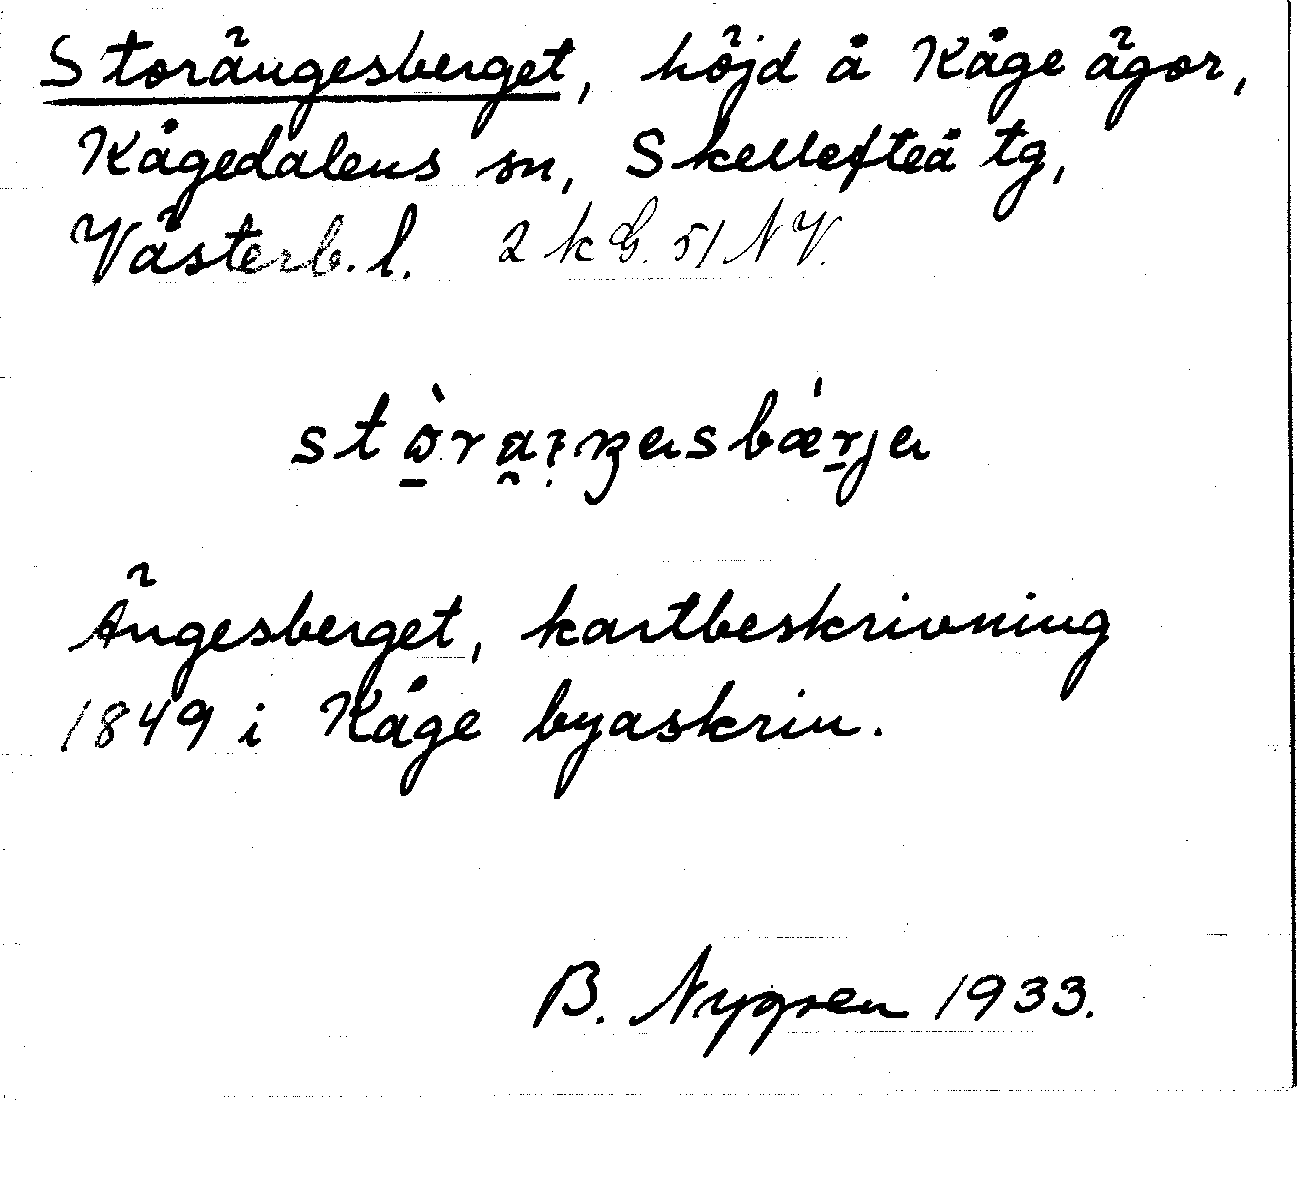 Storängesberget, höjd å Kåge ägor,
Kågedalens sn, Skellefteå tg,
Västerb. l. 2 k G. 51 NV.
Ängesberget, kartbeskrivning
1849 i Kåge byaskrin.
B. Nygren 1933.